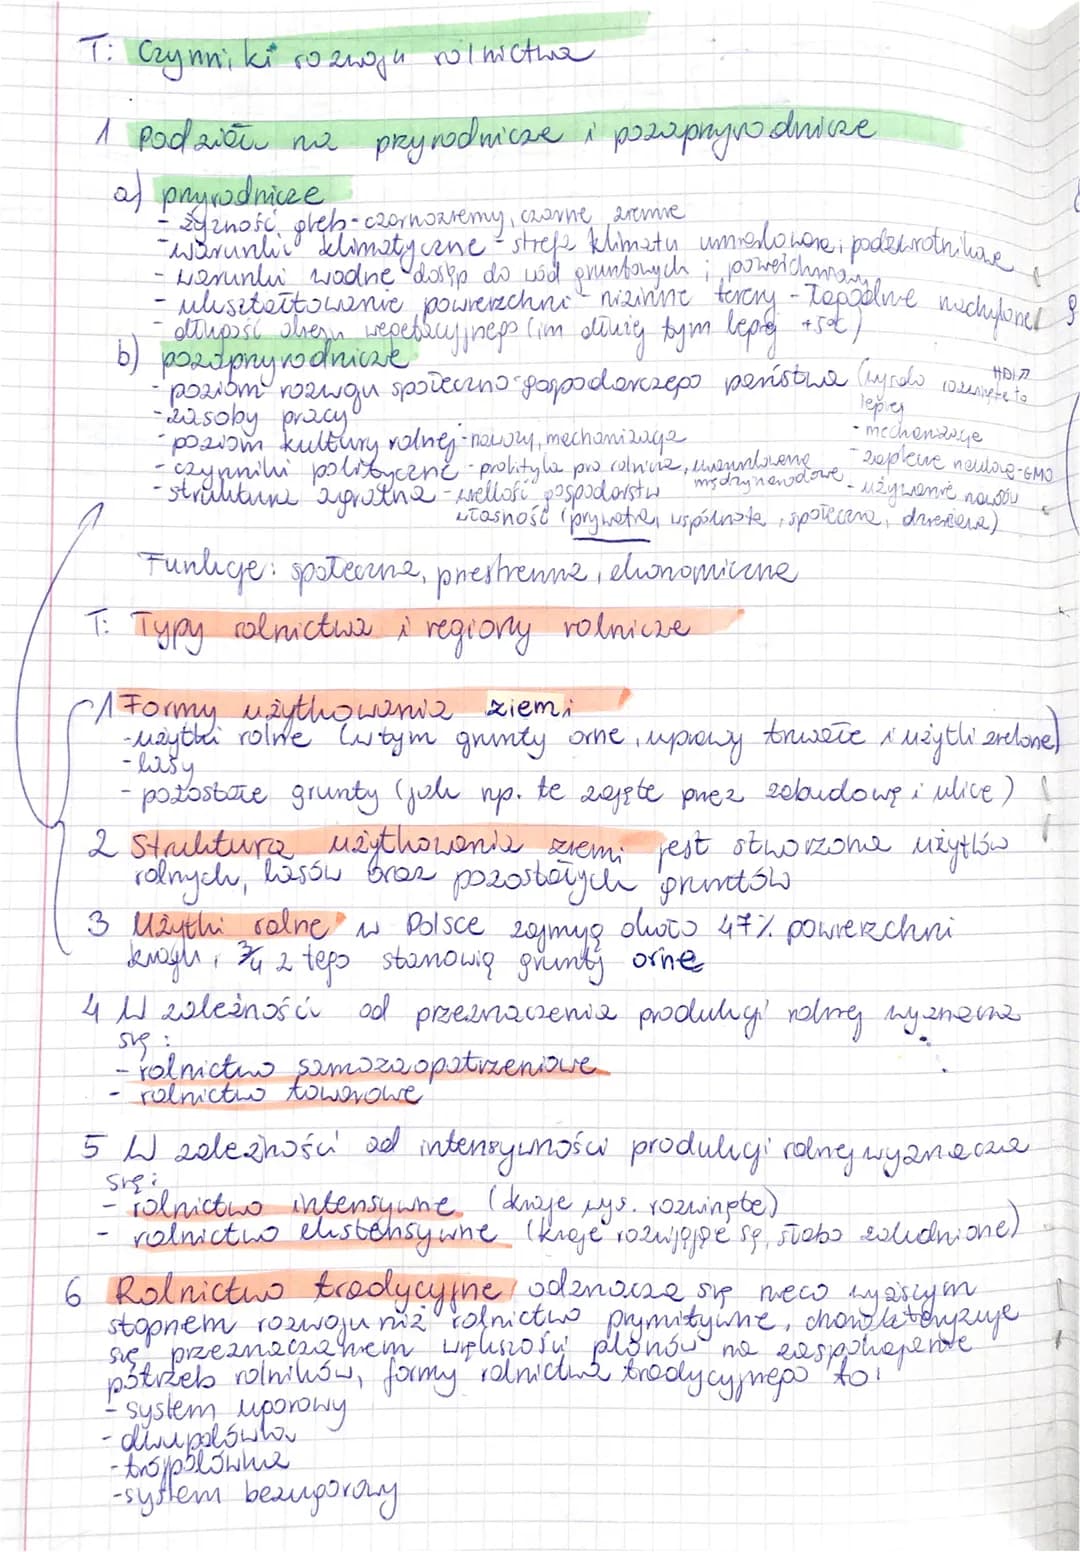 T: Czynniki rozwoju rolnictwa
1 Podział na przyrodnicze i pozaprzyrodnicze
a) przyrodnicze
- żyzność gleb - czarnoziemy, czarne ziemie
- warunki klimatyczne - strefa klimatu umiarkowana i podzwrotnikowe
- warunki wodne dostęp do wód gruntowych i powierzchniowych
- ukształtowanie powierzchni - nizinne tereny - łagodne nachylone
- długość okresu wegetacyjnego (im dłużej tym lepiej +5°C)
b) pozaprzyrodnicze
- poziom rozwoju społeczno-gospodarczego państwa (wysoko rozwinięte to lepiej HDI↗
- zasoby pracy
- poziom kultury rolnej - nawozy, mechanizacja
- mechanizacje
- czynniki polityczne - polityka pro rolnicza, uwarunkowania międzynarodowe
- zaplecze naukowe - GMO
- używanie nawozów
- struktura agrarna - wielkość gospodarstw
własność (prywatna, wspólnota, społeczna, dzierżawa)
Funkcje: społeczna, przestrzenna, ekonomiczna
T: Typy rolnictwa i regiony rolnicze
1 Formy użytkowania ziemi
- użytki rolne (w tym grunty orne, uprawy trwałe i użytki zielone)
- lasy
- pozostałe grunty (jak np. te zajęte przez zabudowę i ulice)
2 Struktura użytkowania ziemi jest stworzona użytków
rolnych, lasów oraz pozostałych gruntów
3 Użytki rolne w Polsce zajmują około 47% powierzchni
kraju, 3/4 z tego stanowią grunty orne
4 W zależności od przeznaczenia produkcji rolnej wyznacza
się:
- rolnictwo samozaopatrzeniowe
- rolnictwo towarowe
5 W zależności od intensywności produkcji rolnej wyznacza
się:
- rolnictwo intensywne (kraje wys. rozwinięte)
- rolnictwo ekstensywne (kraje rozwijające się, słabo zaludnione)
6 Rolnictwo tradycyjne odznacza się nieco wyższym
stopniem rozwoju niż rolnictwo prymitywne, charakteryzuje
się przeznaczaniem większości plonów na zaspokajanie
potrzeb rolników, formy rolnictwa tradycyjnego to:
- system ugorowy
- dwupolówka
- trójpolówka
- system bezugorowy